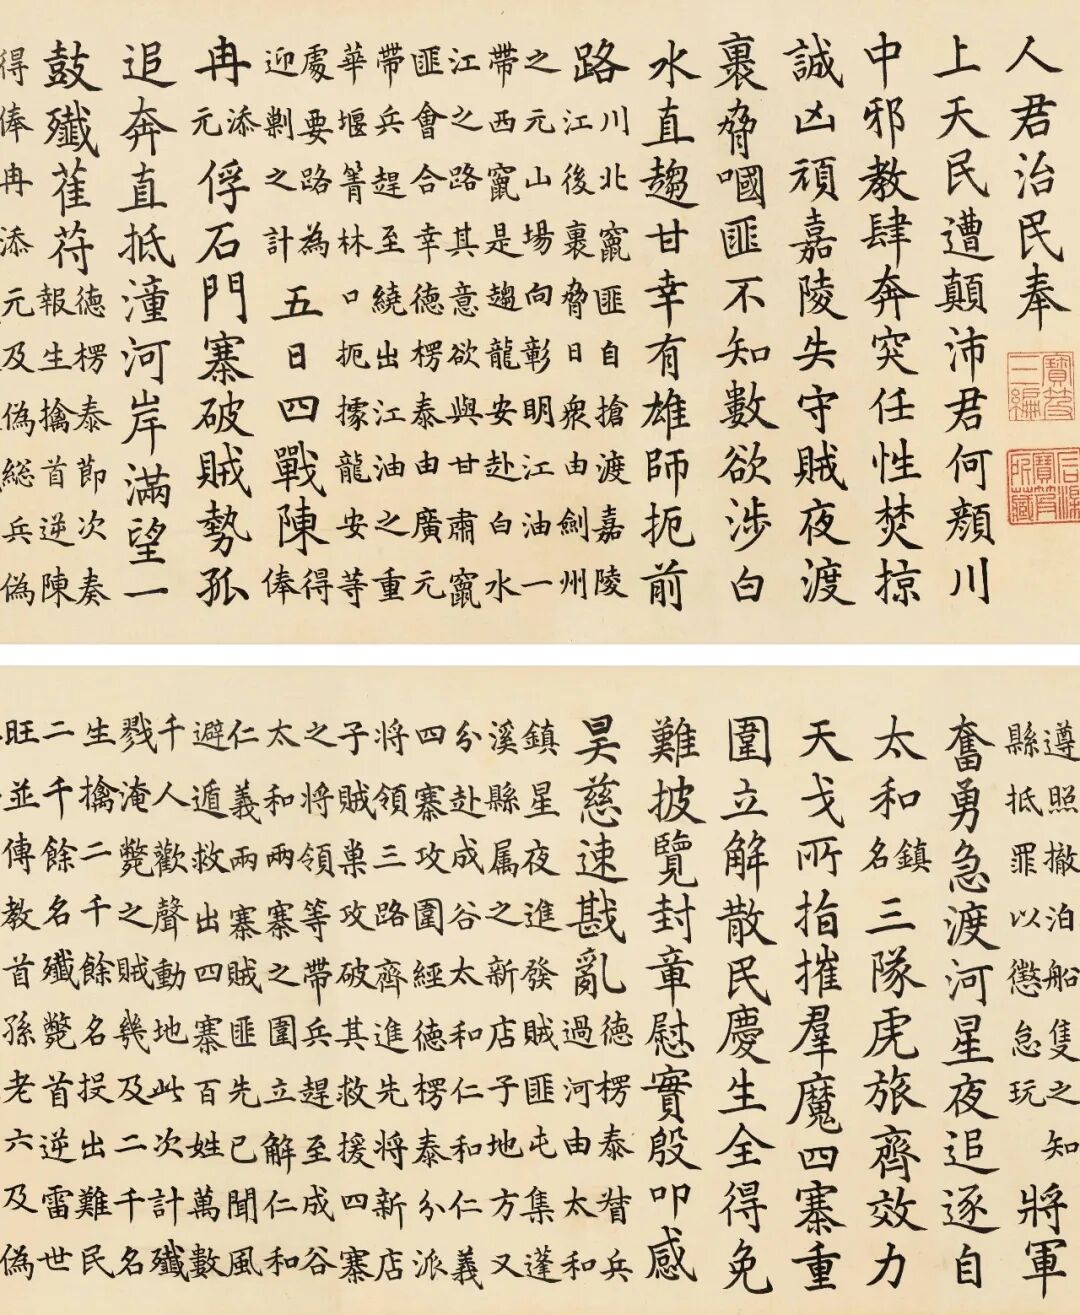 人君治民奉
上天民遭顛沛君何顏川
中邪教肆奔突任性焚掠
誠凶頑嘉陵失守賊夜渡
裹脅嘓匪不知數欲涉白
水直趨甘幸有雄師扼前
路
川北竄匪自搶渡嘉陵
江後裹脅日衆由劍州
之元山場向彰明江油一
帶西竄是趨龍安赴白水
江之路其意欲與甘肅竄
匪會合幸德楞泰由廣元
帶兵趕至繞出江油之重
華堰箐林口扼據龍安等
處要路為
迎剿之計
五日四戰陳得俸
冉添元俘石門寨破賊勢孤
追奔直抵潼河岸滿望一
鼓殲萑苻
德楞泰節次奏
報生擒首逆陳
得俸冉添元及偽總兵偽
寶笈三編
石渠寶笈所藏
遵照撤泊船隻之知
縣抵罪以懲怠玩
將軍
奮勇急渡河星夜追逐自
太和鎮名三隊虎旅齊效力
天戈所指摧羣魔四寨重
圍立解散民慶生全得免
難披覽封章慰實殷叩感
昊慈速戡亂
德楞泰督兵
過河由太和
鎮星夜進發賊匪屯集蓬
溪縣属之新店子地方又
分赴成谷太和仁和仁義
四寨攻圍經德楞泰分派
將領三路齊進先將新店
子賊巢攻破其救援四寨
之將領等帶兵趕至成谷
太和兩寨之圍立解仁和
仁義兩寨賊匪先已聞風
避遁救出四寨百姓萬數
千人歡聲動地此次計殲
戮淹斃之賊幾及二千名
生擒二千餘名投出難民
二千餘名殲斃首逆雷世
旺並傳教首孫老六及偽